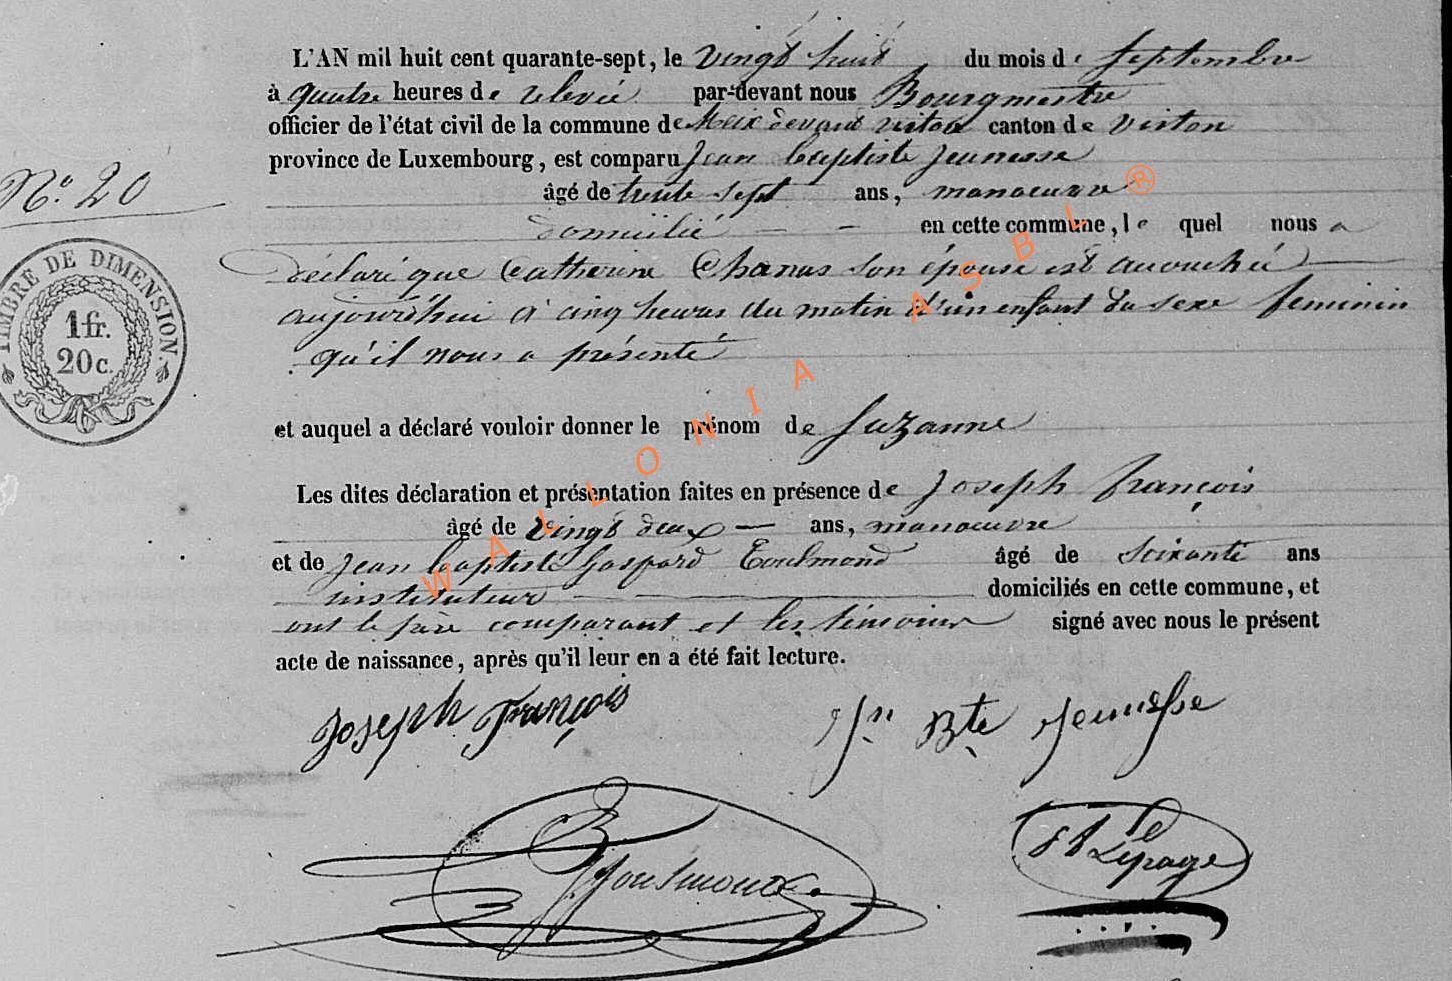 L'AN mil huit cent quarante-sept, le vingt huit du mois de Septembre
à quatre heures de relevée par-devant nous Bourgmestre
officier de l'état civil de la commune de Meix devant virton canton de virton
province de Luxembourg, est comparu Jean baptiste Jeunesse
N.o 20
âgé de trente sept ans, manoeuvre
domicilié — - en cette commune, le quel nous a
déclaré que Catherine Chanus son épouse est accouchée
aujourd'hui à cinq heures du matin d'un enfant du sexe feminin
qu'il nous a présenté
TIMBRE DE DIMENSION.
1 fr.
20 c.
et auquel a déclaré vouloir donner le prénom de Suzanne
Les dites déclaration et présentation faites en présence de Joseph françois
âgé de vingt deux — ans, manoeuvre
et de Jean baptiste Gaspard Toulmond âgé de Soixante ans
instituteur — domiciliés en cette commune, et
ont le père comparant et les témoins signé avec nous le présent
acte de naissance, après qu'il leur en a été fait lecture.
Joseph François
Jn Bte Jeunesse
Toulmond
Lepage
WALLONIA ASBL ®